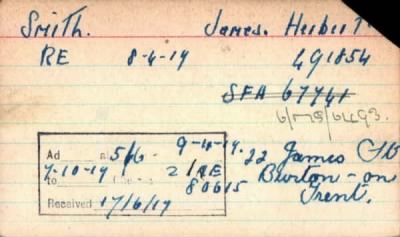 Smith. James. Herbert
RE 8-4-19 491854
SFA 67741
6/MS/6493.
Ad 5/6 9-4-19. 22 James St
7-10-19 2/RE Burton-on
to 80615 Trent.
Received 17/6/19